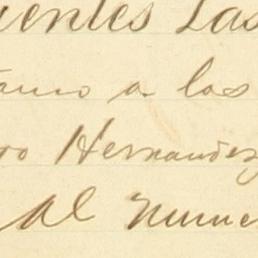 uentes Las
a los
ro Hernandez
al nume